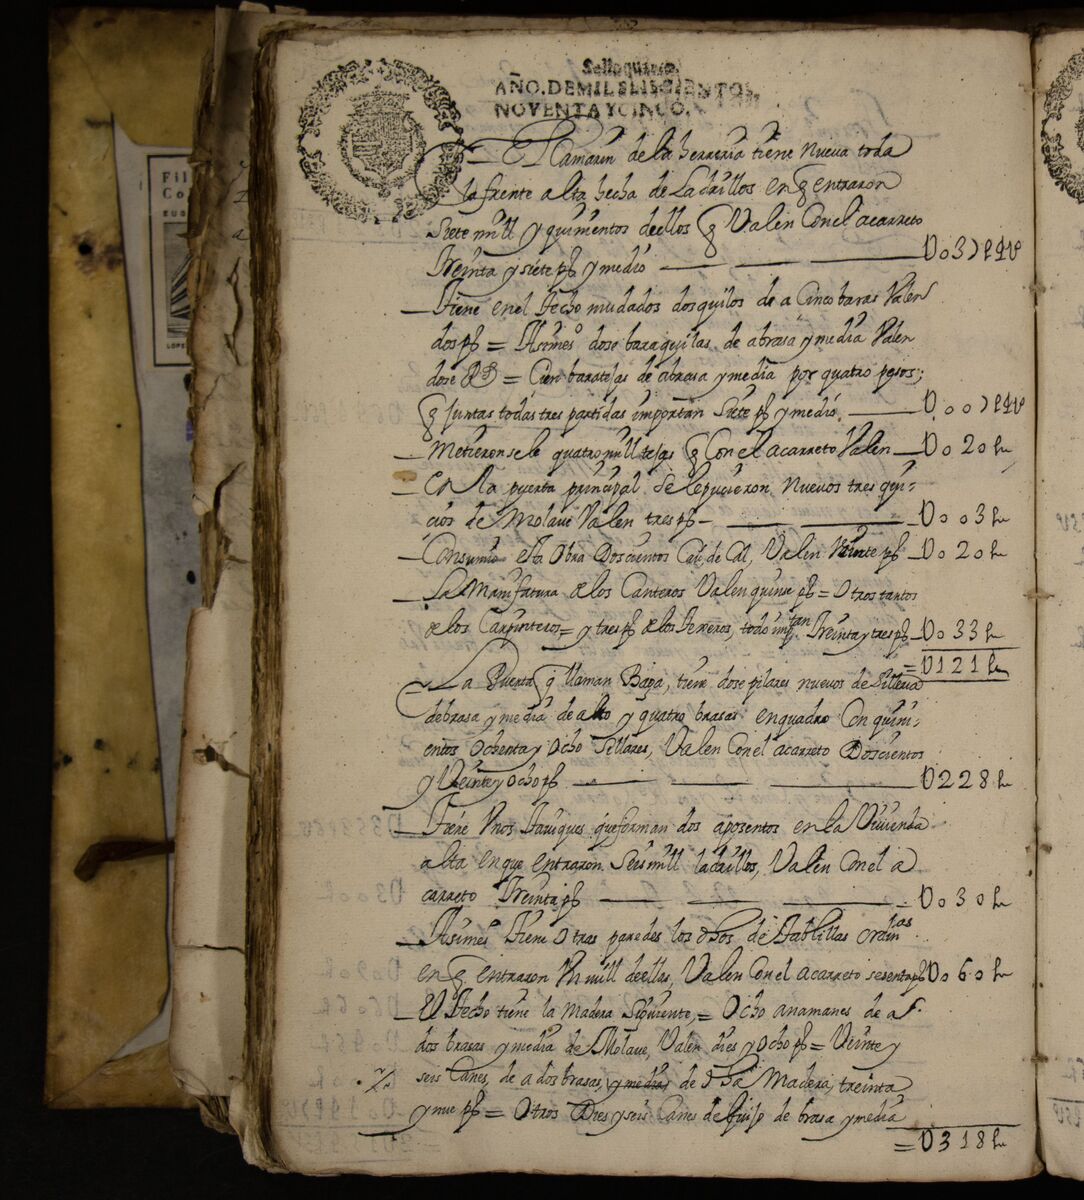 Fil
Co
EUG
LOPE
Selloquarto,
AÑO.DEMILSEISCIENTOS,
NOVENTAYCINCO.
El Camarin de la herreria tiene nueva toda
la frente alta hecha de Ladrillos en q̃ entraron
Siete mill y quinientos deellos q̃ Valen Con el acarreto
Treinta y siete ps y medio
Tiene en el Techo mudados dos quilos de a Cinco baras Valen
dos ps = Asimesº dose baraquilas de abrasa y media Valen
dose RR = Cien baratejas de abrasa y media por quatro pesos;
q̃ juntas todas tres partidas importan Siete ps y medio.
Metieronsele quatro mill tejas q̃ Con el acarreto Valen U o 2 o
En la puerta principal se lepucieron nuevos tres qui-
cios de Molave Valen tres ps U o o 3
Consumio esta Obra Doscientos de Cal, Valen Veinte ps U o 2 o
La Manufatura de los Canteros Valen quinse ps = Otros tantos
de los Carpinteros = y tres ps de los, todo Treinta y tres ps U o 33
= U 1 2 1
La Puerta q̃ llaman Baga, tiene dose pilares nuevos de Silleria
de brasa y media de alto y quatro brasas en quadro Con quini-
entos Ochenta y Ocho Sillares, Valen Con el acarreto Doscientos
y Veinte y ocho ps U 2 2 8
Tiene Vnos Tauiques que forman dos aposentos en la Vivienda
alta en que entraron Seis mill ladrillos, Valen Con el a
carreto Treinta ps U o 3 o
Asimesº Tiene Otras paredes los dhos de Tablillas ordinas.
en q̃ entraron Vn mill deellas, Valen Con el acarreto sesenta ps U o 6 o
El Techo tiene la Madera Siguiente = Ocho anamanes de a
dos brasas y media de Molave, Valen dies y Ocho ps = Veinte y
seis Canes, de a dos brasas, y media de dha Madera, treinta
y nue ps = Otros Dies y seis Canes de Guijo de brasa y media
= U 3 1 8